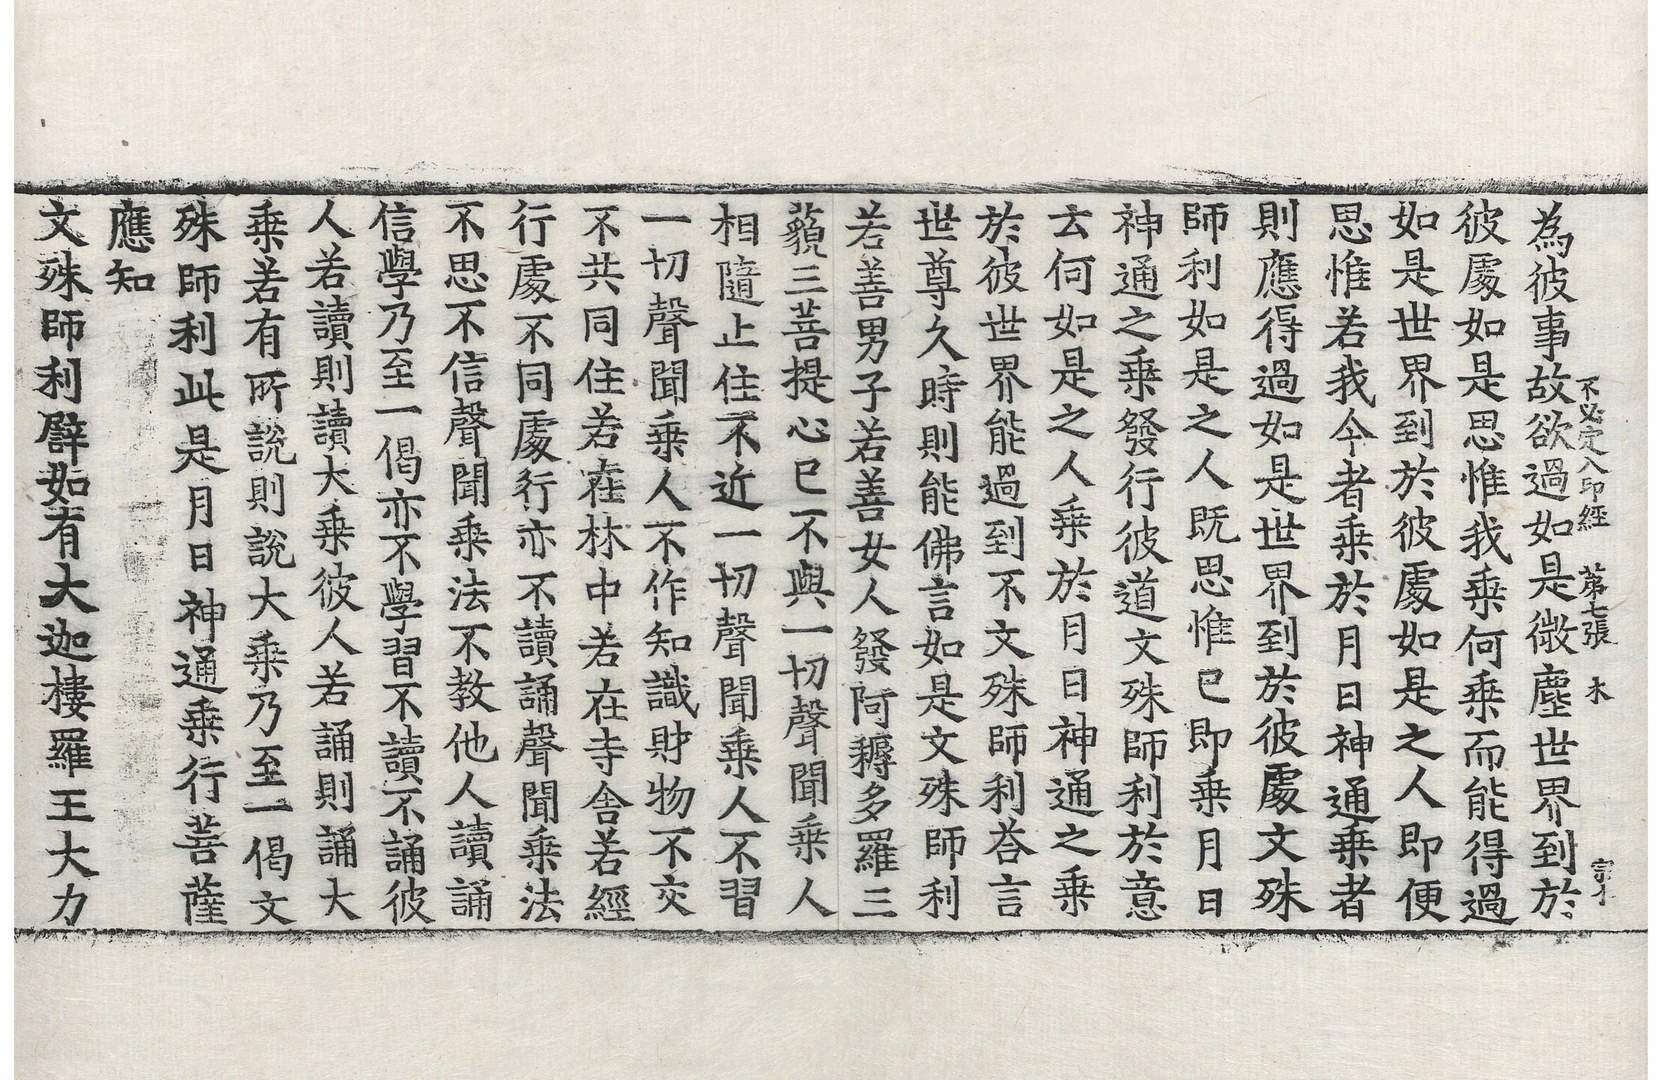 不必定入印經 第七張 木
為彼事故欲過如是微塵世界到於
彼處如是思惟我乘何乘而能得過
如是世界到於彼處如是之人即便
思惟若我今者乘於月日神通乘者
則應得過如是世界到於彼處文殊
師利如是之人既思惟已即乘月日
神通之乘發行彼道文殊師利於意
云何如是之人乘於月日神通之乘
於彼世界能過到不文殊師利荅言
世尊久時則能佛言如是文殊師利
若善男子若善女人發阿耨多羅三
藐三菩提心已不與一切聲聞乘人
相隨止住不近一切聲聞乘人不習
一切聲聞乘人不作知識財物不交
不共同住若在林中若在寺舍若經
行處不同處行亦不讀誦聲聞乘法
不思不信聲聞乘法不教他人讀誦
信學乃至一偈亦不學習不讀不誦彼
人若讀則讀大乘彼人若誦則誦大
乘若有所說則說大乘乃至一偈文
殊師利此是月日神通乘行菩薩
應知
文殊師利譬如有大迦樓羅王大力